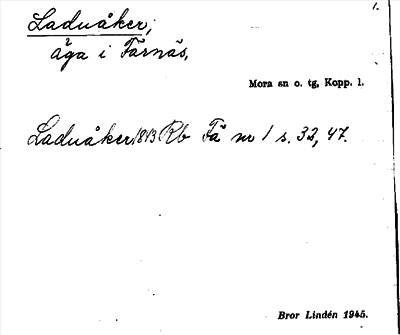 1.
Laduåker,
äga i Färnäs,
Mora sn o. tg, Kopp. l.
Laduåker 1813 Rb Fä nr 1 s. 32, 47.
Bror Lindén 1945.